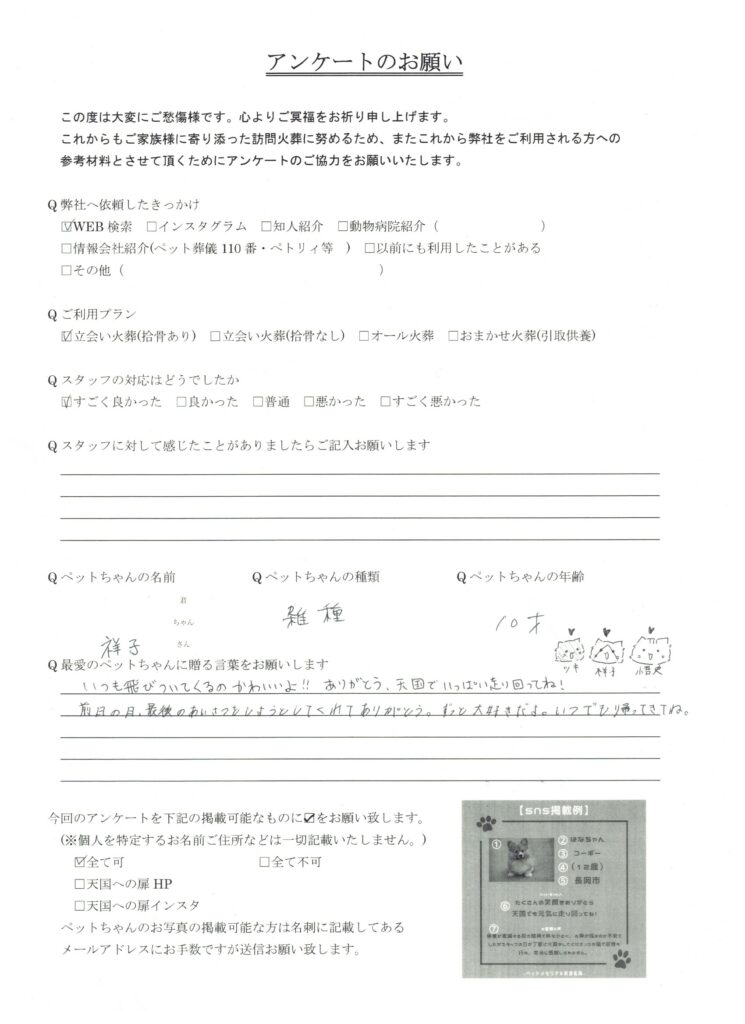 アンケートのお願い
この度は大変にご愁傷様です。心よりご冥福をお祈り申し上げます。
これからもご家族様に寄り添った訪問火葬に努めるため、またこれから弊社をご利用される方への
参考材料とさせて頂くためにアンケートのご協力をお願いいたします。
Q 弊社へ依頼したきっかけ
☑WEB 検索 □インスタグラム □知人紹介 □動物病院紹介（ ）
□情報会社紹介(ペット葬儀 110 番・ペトリィ等 ) □以前にも利用したことがある
□その他（ ）
Q ご利用プラン
☑立会い火葬(拾骨あり) □立会い火葬(拾骨なし) □オール火葬 □おまかせ火葬(引取供養)
Q スタッフの対応はどうでしたか
☑すごく良かった □良かった □普通 □悪かった □すごく悪かった
Q スタッフに対して感じたことがありましたらご記入お願いします
Q ペットちゃんの名前 Q ペットちゃんの種類 Q ペットちゃんの年齢
君
ちゃん
さん
祥子 雑種 10才
ツキ 祥子
Q 最愛のペットちゃんに贈る言葉をお願いします
いつも飛びついてくるの かわいいよ!! ありがとう、天国でいっぱい走り回ってね!
前日の日、最後のあいさつをしようとしてくれてありがとう。ずっと大好きだよ。いつでも帰ってきてね。
今回のアンケートを下記の掲載可能なものに☑をお願い致します。
(※個人を特定するお名前ご住所などは一切記載いたしません。)
☑全て可 □全て不可
□天国への扉 HP
□天国への扉インスタ
ペットちゃんのお写真の掲載可能な方は名刺に記載してある
メールアドレスにお手数ですが送信お願い致します。
【sns掲載例】
① ② はなちゃん
③ コーギー
④ （12歳）
⑤ 長岡市
⑥ たくさんの笑顔をありがとう
天国でも元気に走り回ってね!
⑦